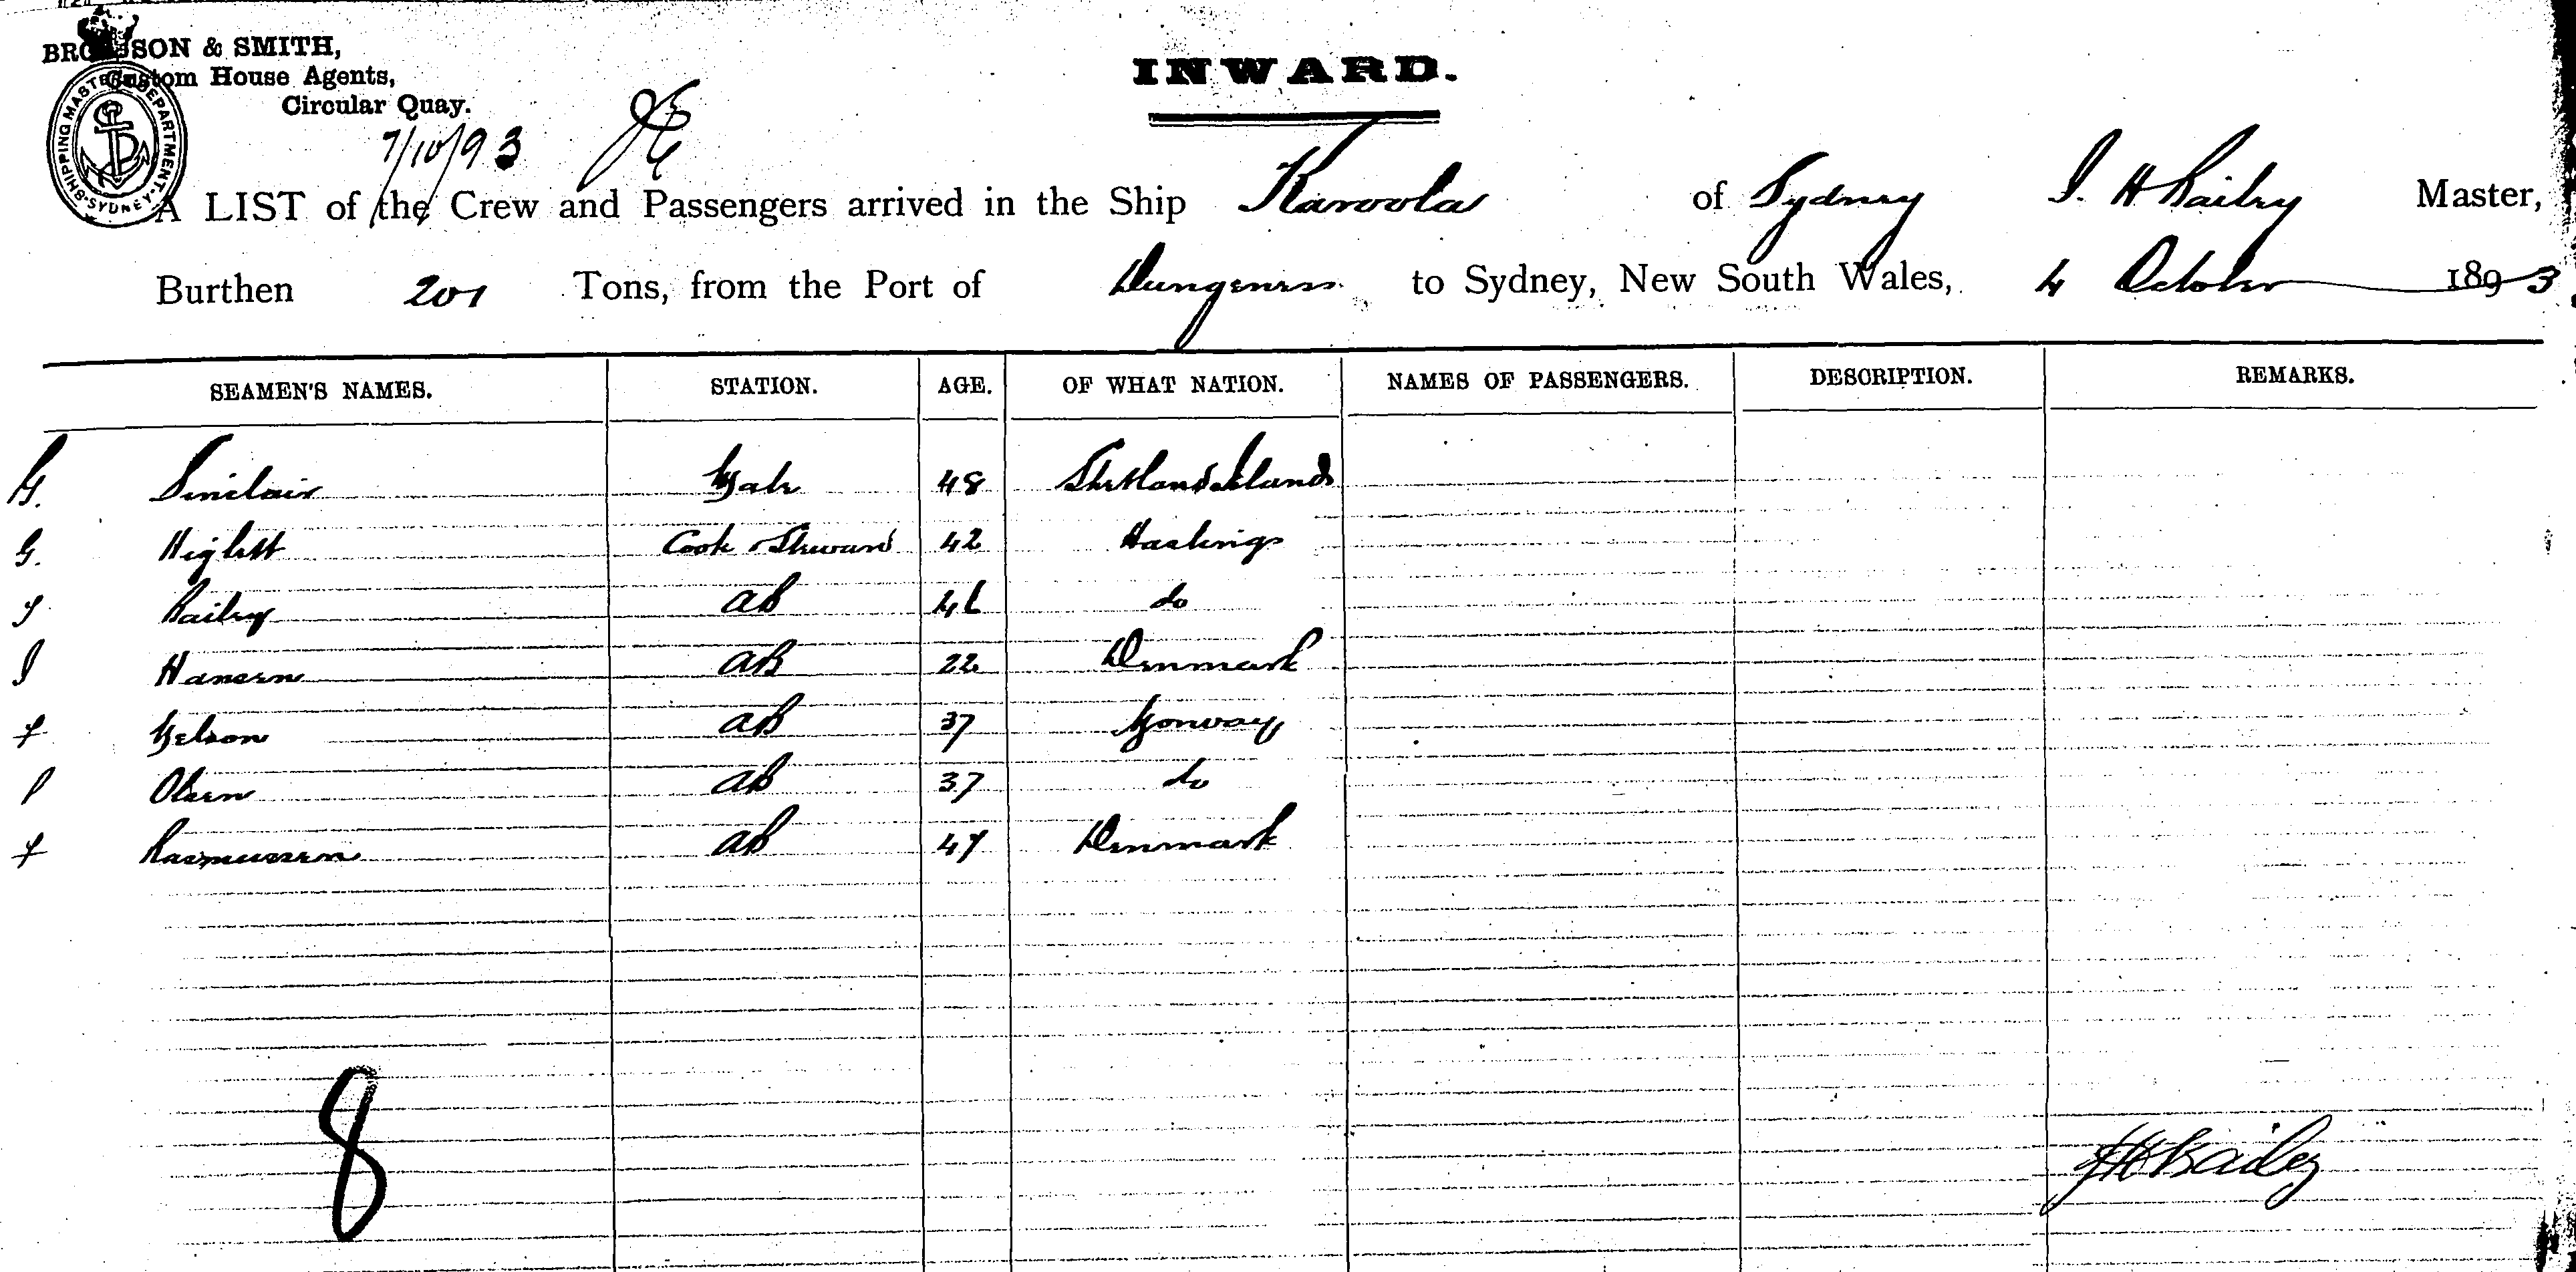 & SMITH,
Custom House Agents,
Circular Quay.
SHIPPING MASTER'S DEPARTMENT SYDNEY
7/10/93
INWARD.
A LIST of the Crew and Passengers arrived in the Ship Karoola of Sydney J. H Bailey Master,
Burthen 201 Tons, from the Port of Dungeness to Sydney, New South Wales, 4 October 1893
SEAMEN'S NAMES. STATION. AGE. OF WHAT NATION. NAMES OF PASSENGERS. DESCRIPTION. REMARKS.
Sinclair Mate 48 Shetland Islands
G. Higlett Cook & Steward 42 Hastings
Bailey AB do
Hansen AB 22 Denmark
Nelson AB 37 Norway
Olsen AB 37 do
Rasmussen AB 47 Denmark
8
JHBailey